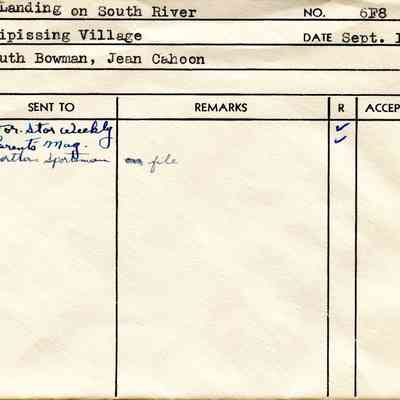 Landing on South River NO. 6F8
ipissing Village DATE Sept. 1
uth Bowman, Jean Cahoon
SENT TO REMARKS R ACCEP
or. Star Weekly ✓
arents Mag. ✓
Sportsman on file